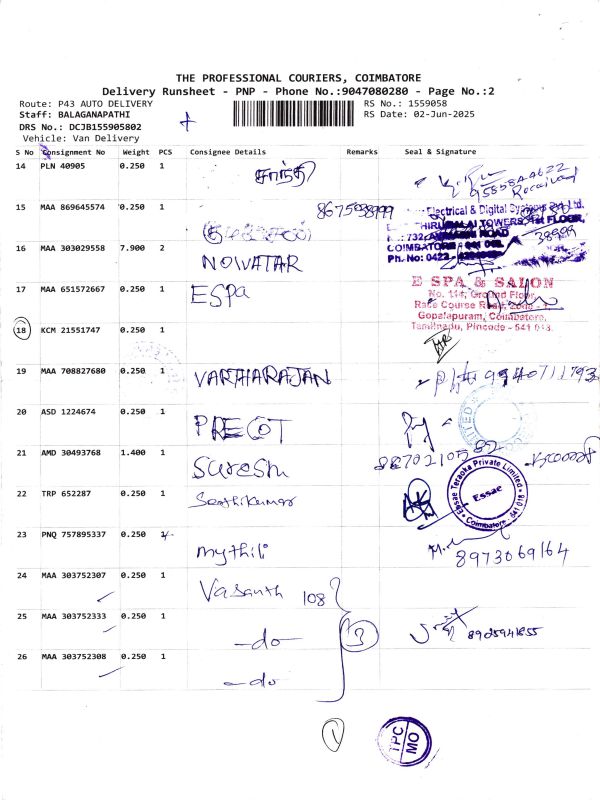 THE PROFESSIONAL COURIERS, COIMBATORE
Delivery Runsheet - PNP - Phone No.:9047080280 - Page No.:2
Route: P43 AUTO DELIVERY RS No.: 1559058
Staff: BALAGANAPATHI RS Date: 02-Jun-2025
DRS No.: DCJB155905802
Vehicle: Van Delivery
S No Consignment No Weight PCS Consignee Details Remarks Seal & Signature
14 PLN 40905 0.250 1 சாந்தி
Received
15 MAA 869645574 0.250 1 8675938999
Electrical & Digital Systems Pvt Ltd.
THIRUMALAI TOWERS, 1st FLOOR,
732, AVINASHI ROAD
38999
16 MAA 303029558 7.900 2 NOWATAR
COIMBATORE
Ph. No: 0422
17 MAA 651572667 0.250 1 ESPA
E SPA & SALON
No. 114, Ground Floor,
Race Course Road,
Gopalapuram, Coimbatore,
Tamilnadu, Pincode - 641 018.
18 KCM 21551747 0.250 1
19 MAA 708827680 0.250 1 VARTHARAJAN 9940711793
20 ASD 1224674 0.250 1 PRECOT
21 AMD 30493768 1.400 1 Suresh
22 TRP 652287 0.250 1 Senthilkumar
Essae Teraoka Private Limited
Essae
Coimbatore - 641 018
23 PNQ 757895337 0.250 mythili 8973069164
24 MAA 303752307 0.250 1 Vasanth 108
25 MAA 303752333 0.250 1 -do- 3 8925941855
26 MAA 303752308 0.250 1 -do-
1
TPC
MO